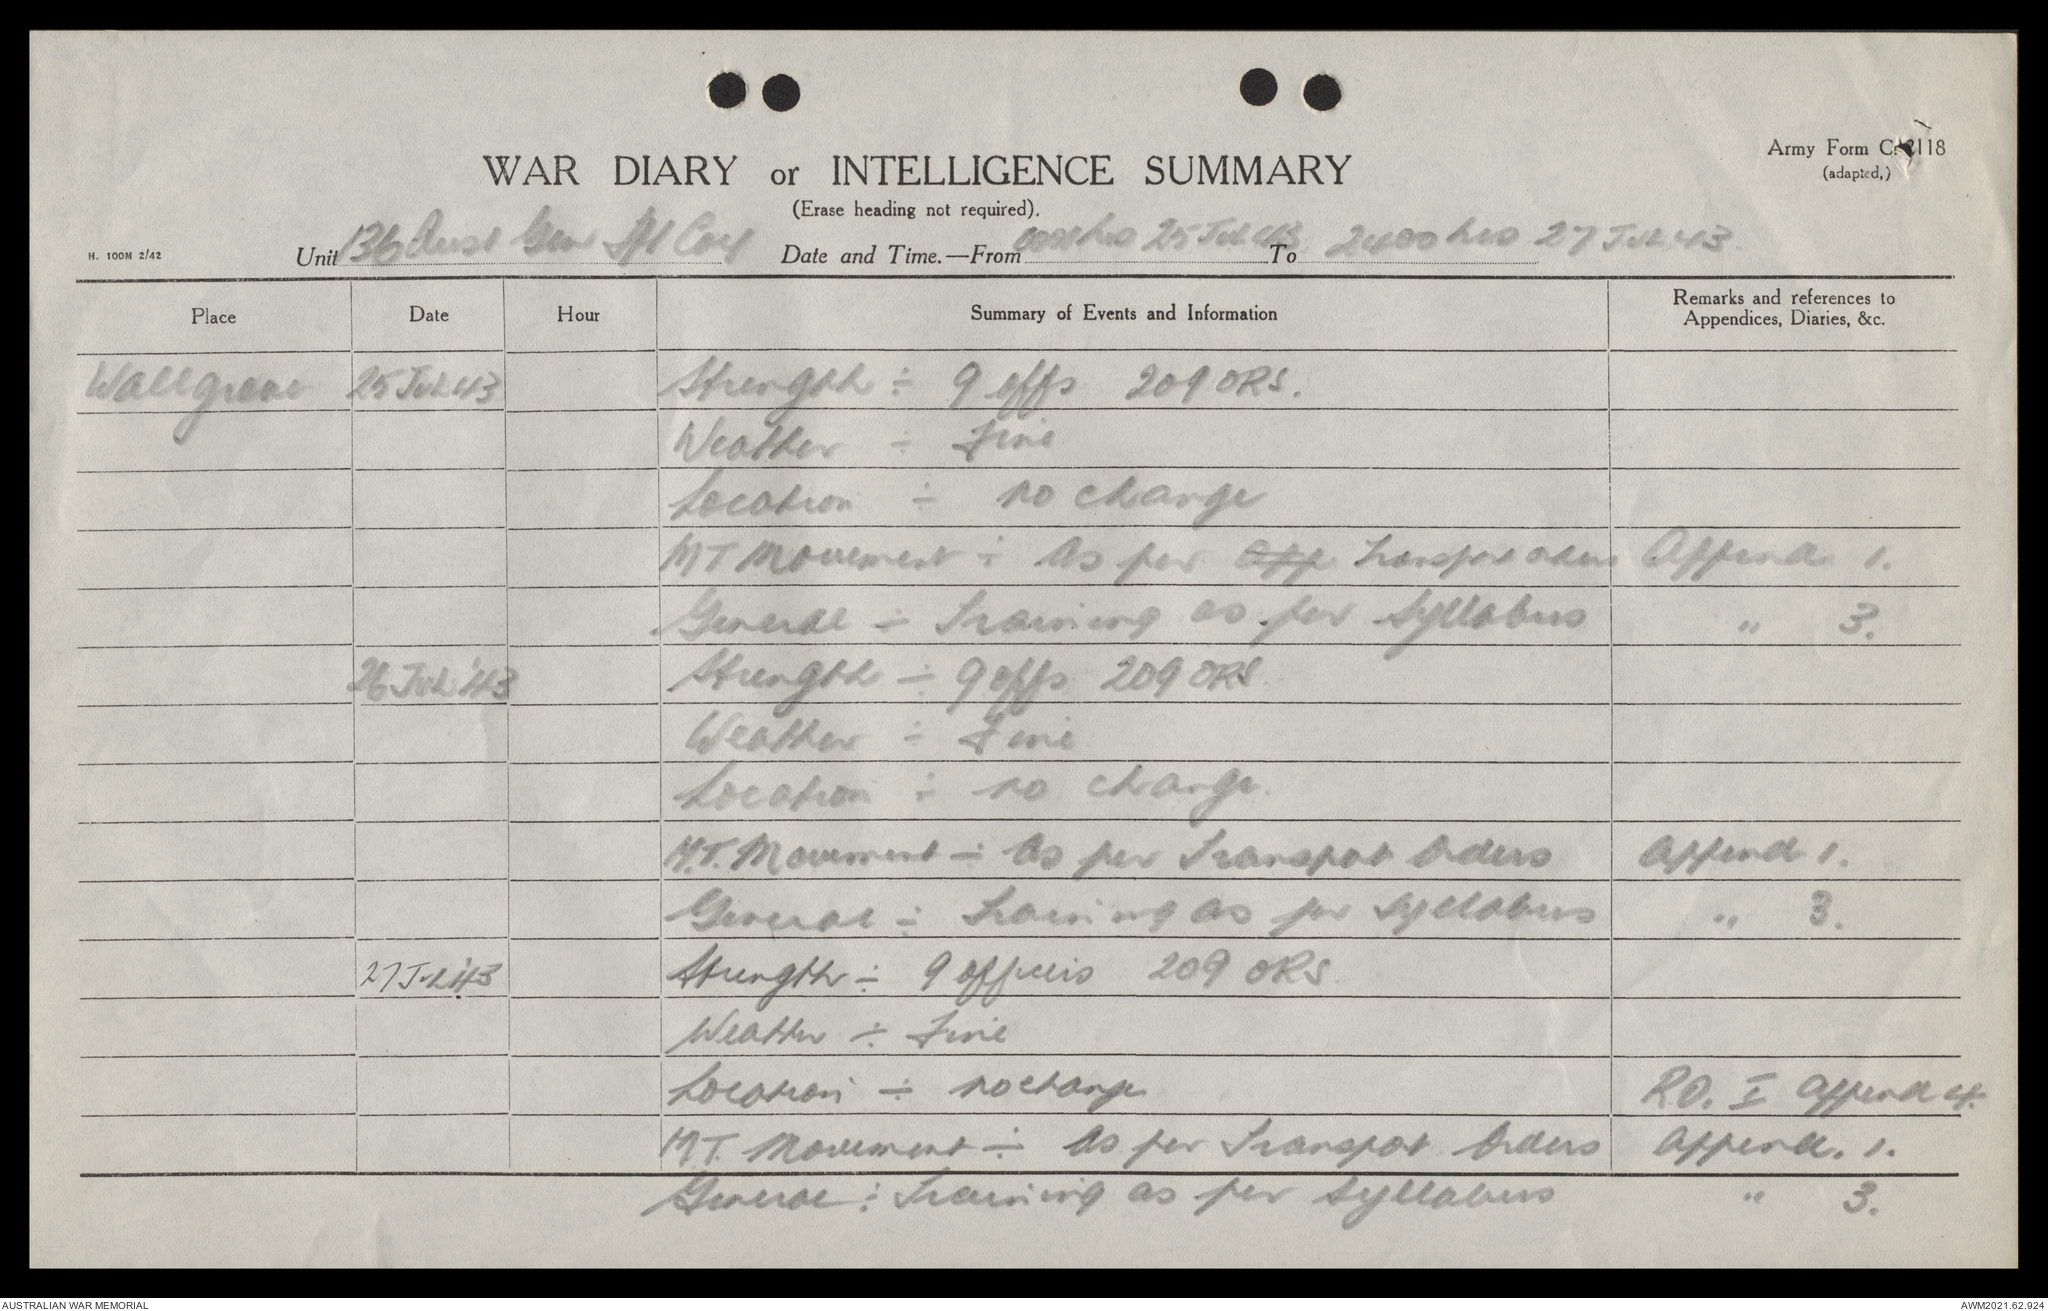 Army Form C. 2118
(adapted,)
WAR DIARY or INTELLIGENCE SUMMARY
(Erase heading not required).
H. 100M 2/42 Unit 136 Aust Gen Tpt Coy Date and Time.—From 0001 hrs 25 Jul 43 To 2400 hrs 27 Jul 43
Place Date Hour Summary of Events and Information Remarks and references to Appendices, Diaries, &c.
Wallgrove 25 Jul 43 Strength ÷ 9 offs 209 ORS.
Weather ÷ Fine
Location ÷ no change
MT Movement ÷ As per App Transport orders Append 1.
General ÷ Training as per Syllabus " 3.
26 Jul '43 Strength ÷ 9 offs 209 ORS
Weather ÷ Fine
Location ÷ no change.
M.T. Movement ÷ As per Transport Orders Append 1.
General ÷ Training as per Syllabus " 3.
27 Jul '43 Strength ÷ 9 officers 209 ORS
Weather ÷ Fine
Location ÷ no change R.O. I Append 4.
MT. Movement ÷ As per Transport Orders Append. 1.
General : Training as per Syllabus " 3.
AUSTRALIAN WAR MEMORIAL AWM2021.62.924